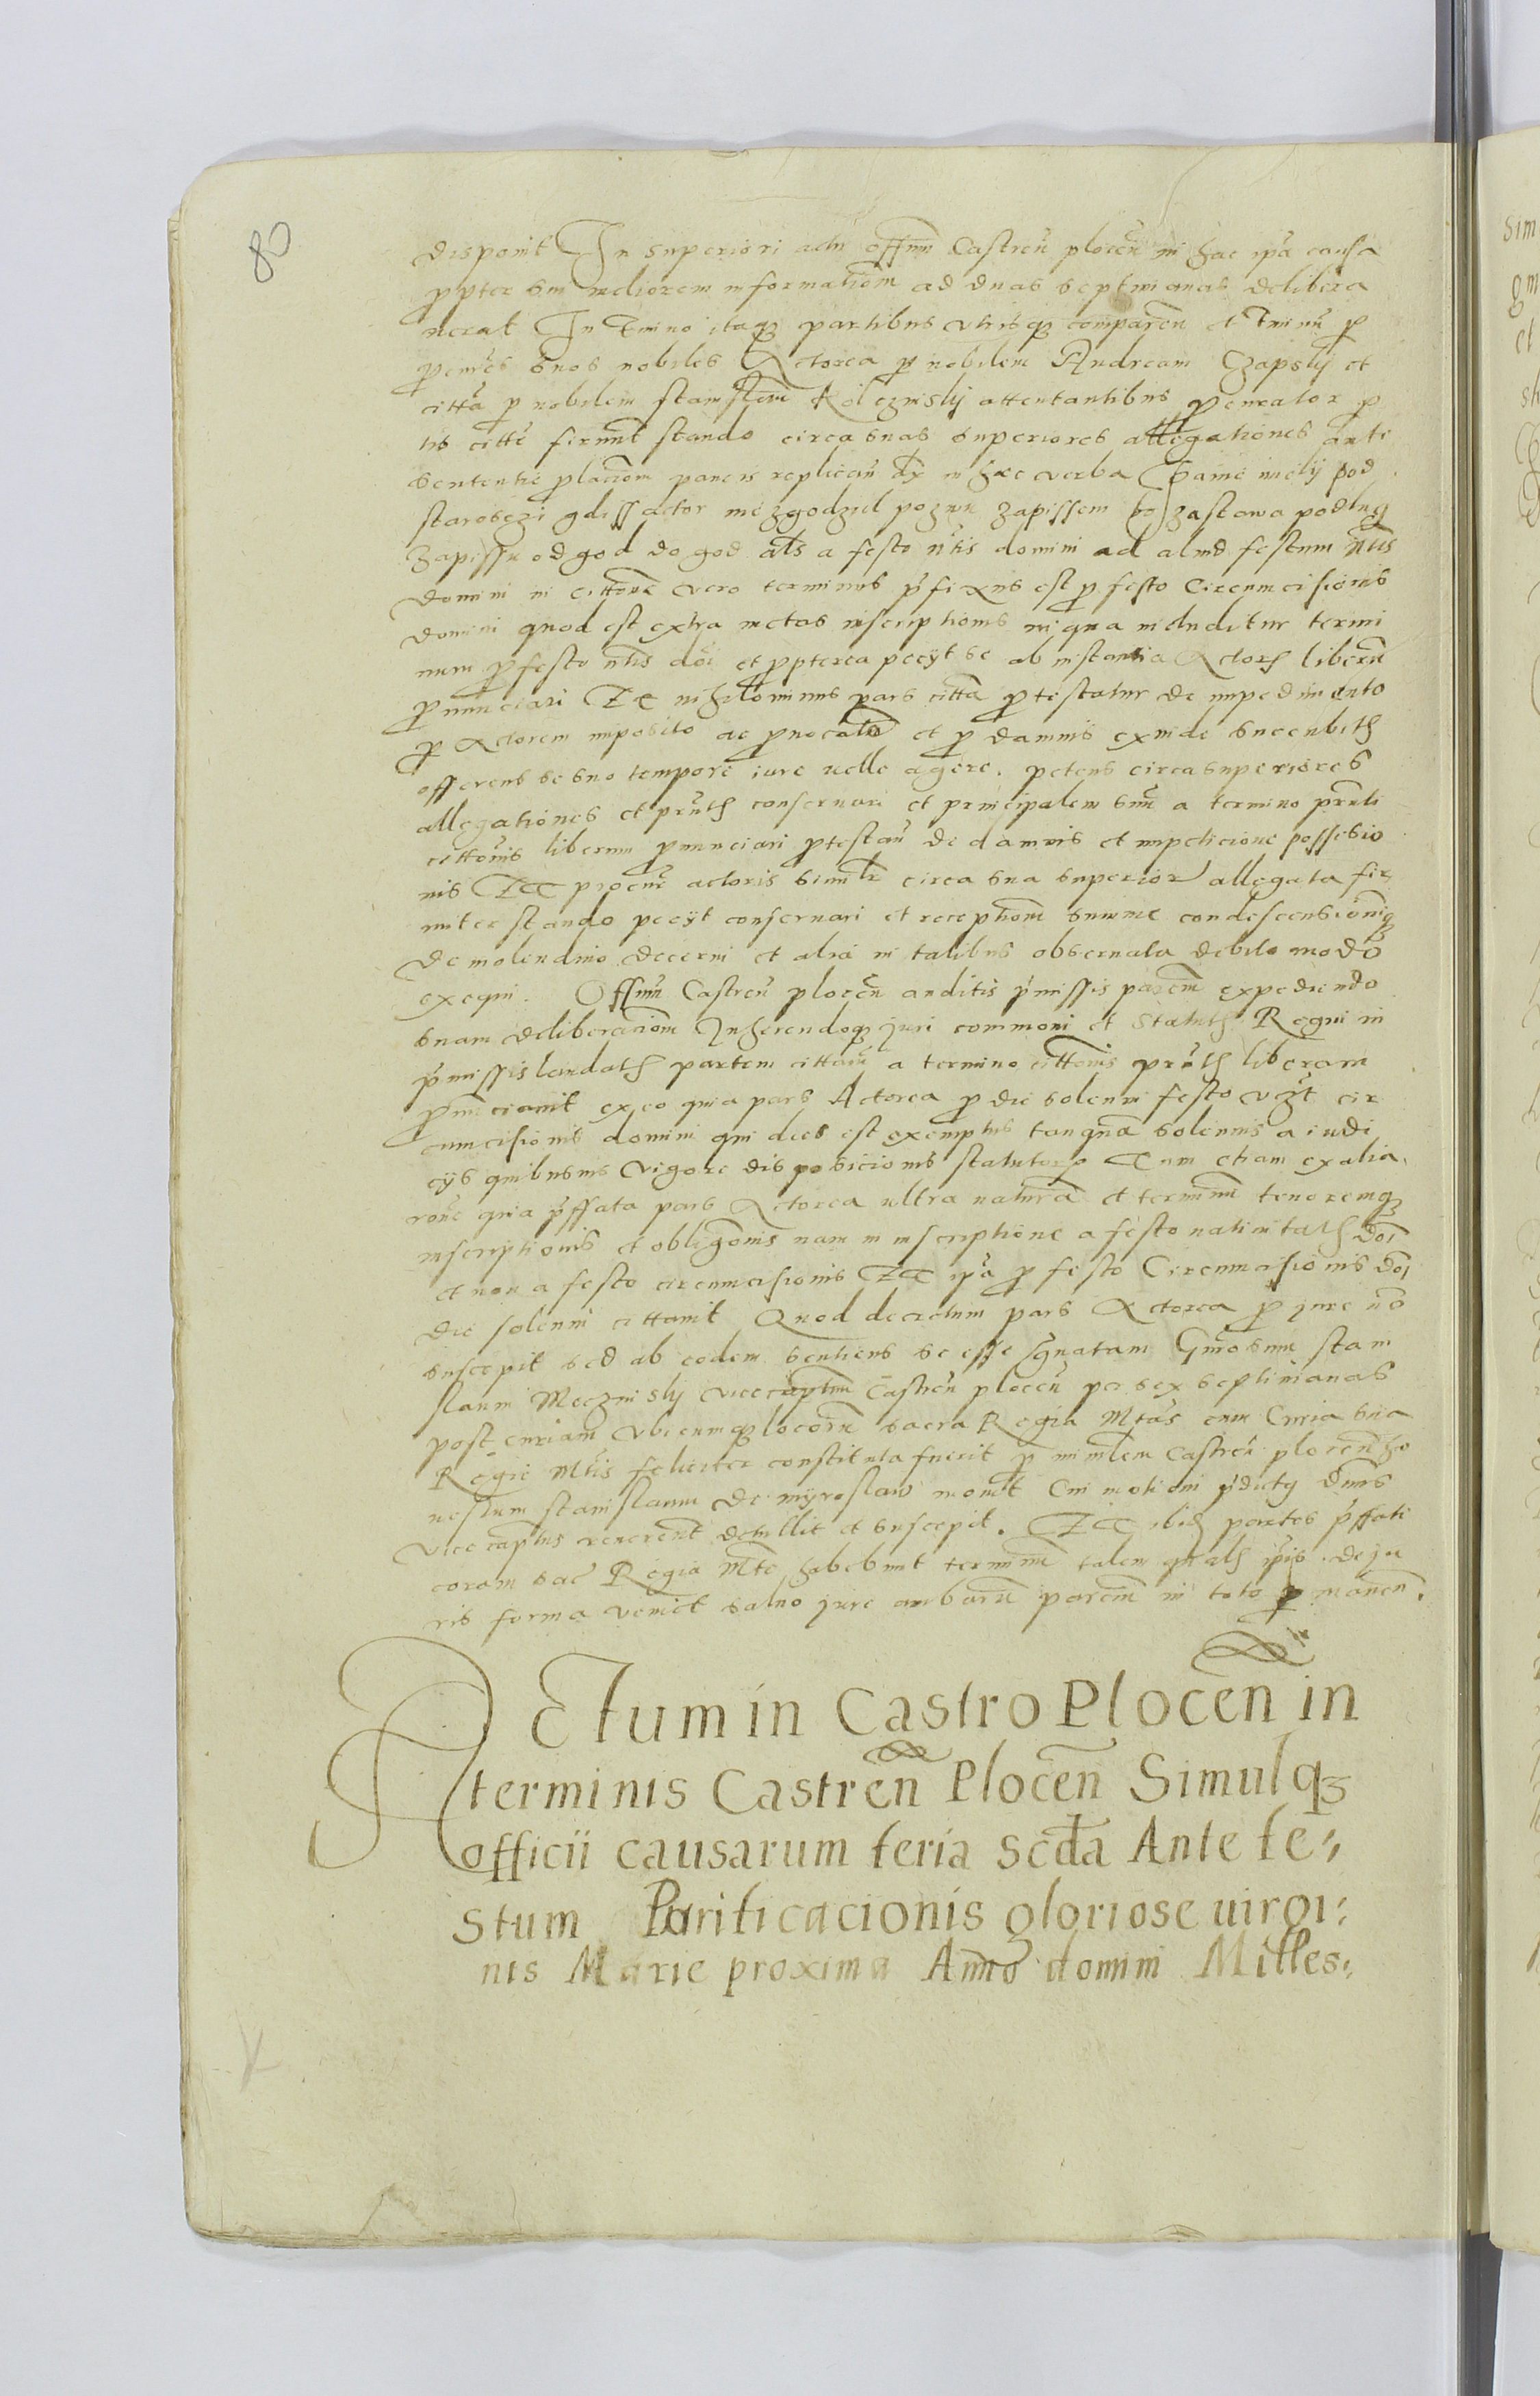 80
disponit In superiori actu offitiu Castren̄ plocen̄ in hac ip̄a causa
propter sui meliorem informationem ad duas septimanas delibera
uerat In Tmino itaq3 partibus utrisq3 comparen̄ et Tminū p
procures suos nobiles Actorea p nobilem Andream Czapsky et
citta p nobilem stanislaum attentantibus procurator p
tis citte firmit stando circa suas superiores allegationes ante
sententie prolaciom paucis replicau in hæc verba Panie miely pod
starosczi gdiss actor niezgodzil pozwu zapissem bo zastawa podlug
zapissu od god do god als a festo ntis domini ad aliud festum ntis
domini in cittone vero terminus p̄fixus est p festo Circumcisionis
domini quod est extra metas inscriptionis in qua includitur termi
num p festo ntis dni et propterea pecijt se ab instantia Actor liberu
pronunciari Et nihilominus pars citta protestatur de impedimento
p Actorem imposito ac prouocato et p damnis exinde
offerens se suo tempore iure uelle agere. petens circa superiores
allegationes et pruth conseruari et principalem suu a termino prnti
cittonis liberum pronunciari protestan de damnis et impeticione possessio
nis Et procur actoris similr circa sua superior allegata fir
miter stando pecijt conseruari et receptiom summe condescensioniq3
de molendino decerni et alia in talibus obseruata debito modo
exequi. Offitiu Castren̄ plocen̄ auditis p̄missis parcium expediendo
suam deliberaciom Inherendoq3 juri communi et statutis Regni in
p̄missis laudatis partem cittam a termino cittonis prnth liberam
pronunciauit ex eo quia pars Actorea p die solenni festo vzt cir
cumcisionis domini qui dies est exemptus tanqua solennis a iudi
cijs quibusuis vigore disposicionis statutorum Tum etiam ex alia
rone quia p̄ffata pars Actorea ultra natura et terminum tenoremq3
inscriptionis et obligonis nam in inscriptione a festo natiuitatis doi
et non a festo circumcisionis Et ip̄a p festo Circumcisionis doi
die solenni cittauit Quod decretum pars Actorea p jure no
suscepit sed ab eodem sentiens se esse grauatam Gnosum stani
slaum Meczinsky vicecaptm Castren̄ plocen̄ per sex septimanas
post curiam vbicumq3 locoru sacra Regia Mtas cum Curia sua
Regie Mtis feliciter constituta fuerit p minlem Castren̄ plocen̄ ho
nestum stanislaum de myroslaw mouit Cui motioni p̄dictus dnus
vice captus reuerent detullit et suscepit. Et ibid partes p̄ffate
coram sac Regia Mte habebunt terminum talem qualis ipsis de ju
ris forma veniet saluo jure ambaru parcium in toto p manen.
Actum in Castro Plocen̄ in
terminis Castren̄ Plocen̄ Simulq3
officii causarum feria scda Ante fe⸗
stum Purificacionis gloriose uirgi⸗
nis Marie proxima Anno domini Milles⸗